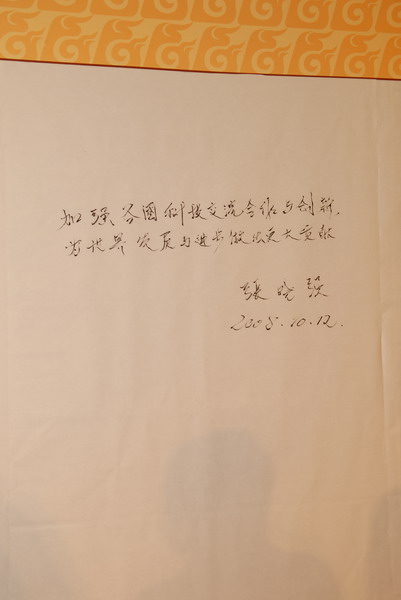 加强各國科技交流合作与创新，
为世界发展与进步做出更大贡献
張晓强
2008.10.12.